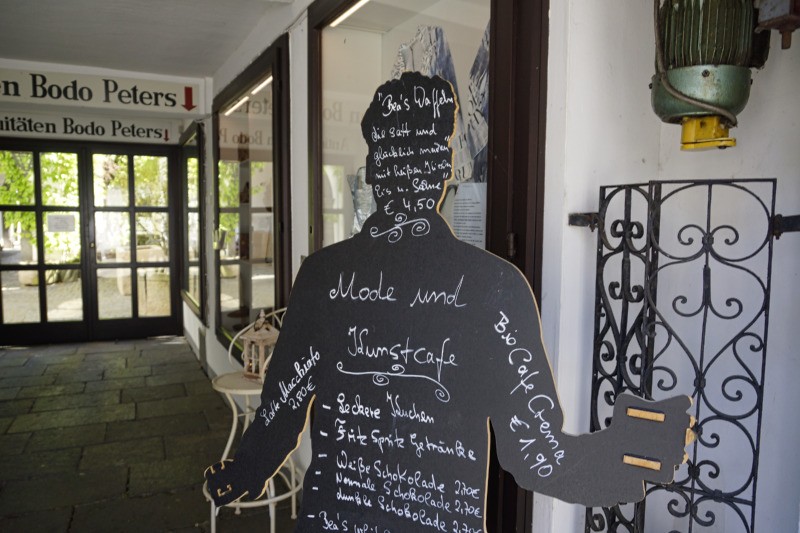 en Bodo Peters
nitäten Bodo Peters
"Bea's Waffeln
die satt und
glücklich machen"
mit heißen Kirschen
Eis u. Sahne
€ 4,50
Mode und
Kunstcafe
Latte Macchiato
2,80€
Bio Cafe Crema
€ 1,90
- Leckere Kuchen
- Fritz Spritz Getränke
- Weiße Schokolade 2,70€
- Normale Schokolade 2,70€
- dunkle Schokolade 2,70
- Bea's